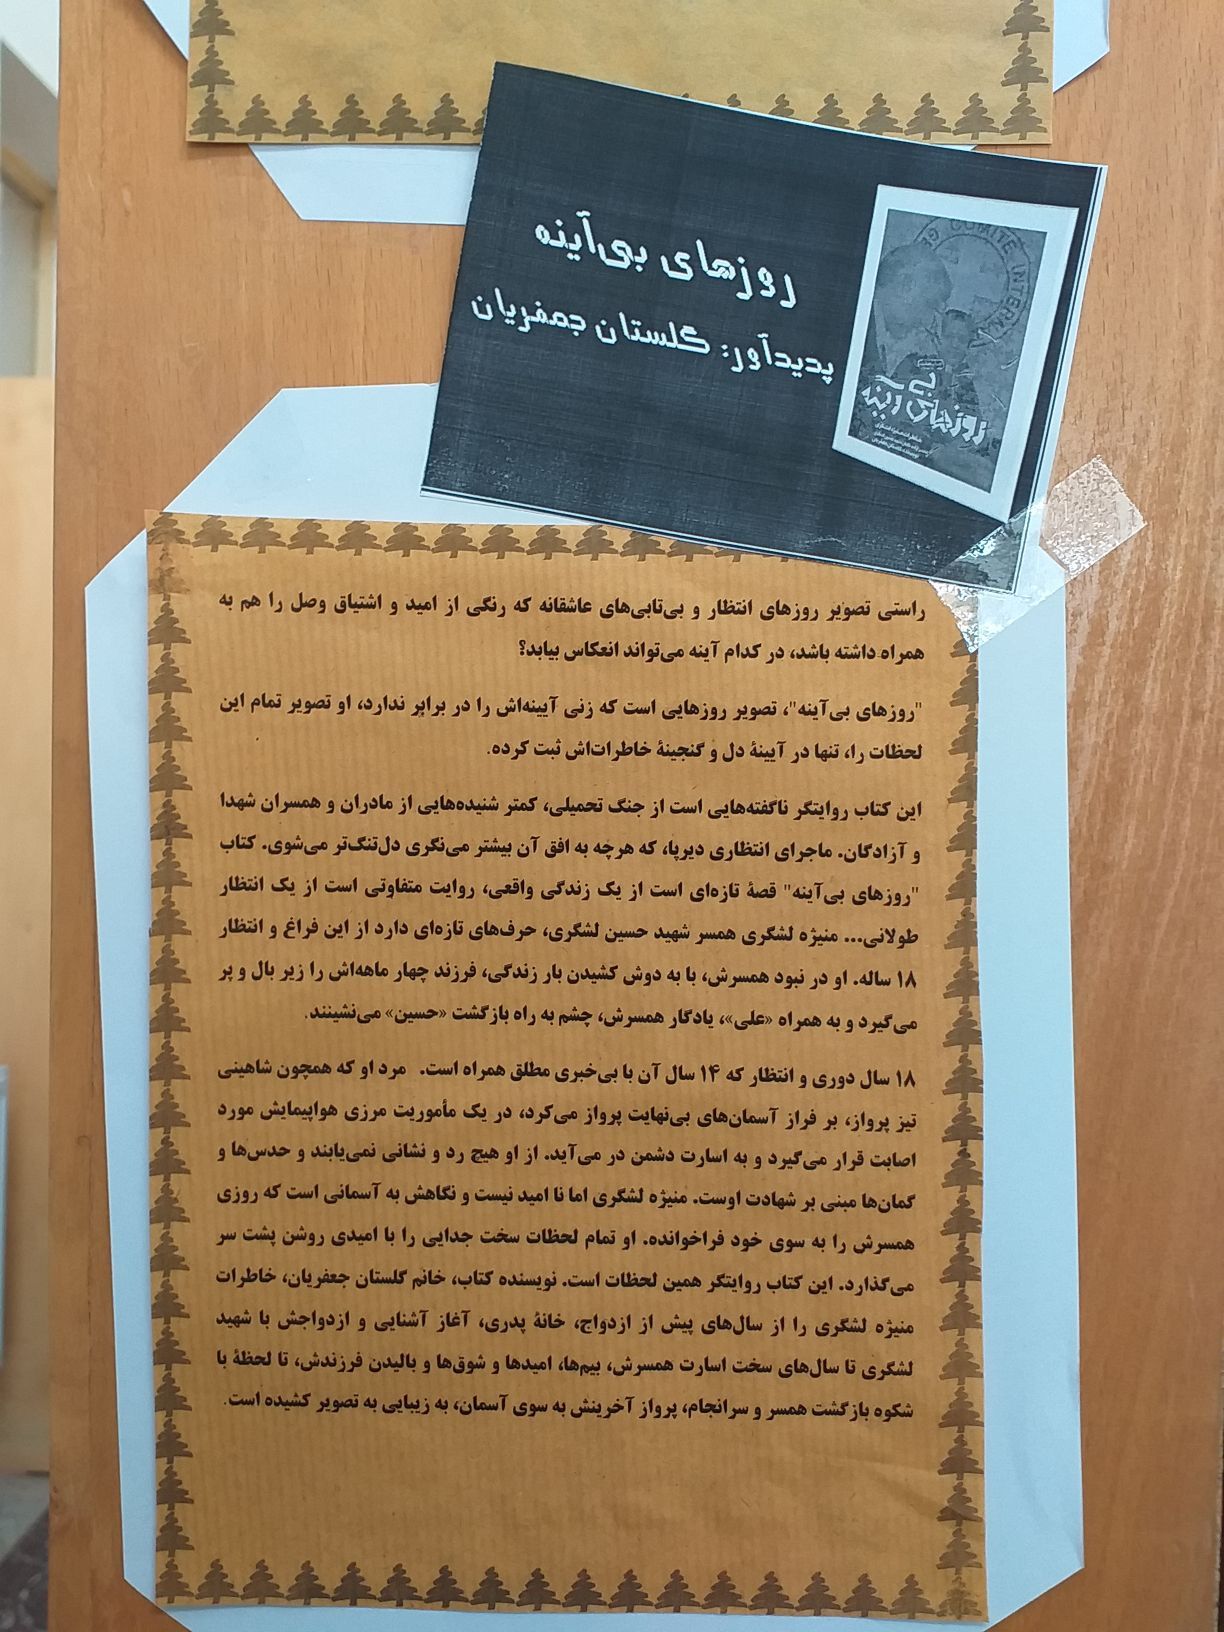 روزهای بی‌آینه
پدیدآور: گلستان جعفریان
COMITE INTERNA
روزهای بی آینه
راستی تصویر روزهای انتظار و بی‌تابی‌های عاشقانه که رنگی از امید و اشتیاق وصل را هم به
همراه داشته باشد، در کدام آینه می‌تواند انعکاس بیابد؟
"روزهای بی‌آینه"، تصویر روزهایی است که زنی آیینه‌اش را در برابر ندارد، او تصویر تمام این
لحظات را، تنها در آیینهٔ دل و گنجینهٔ خاطرات‌اش ثبت کرده.
این کتاب روایتگر ناگفته‌هایی است از جنگ تحمیلی، کمتر شنیده‌هایی از مادران و همسران شهدا
و آزادگان. ماجرای انتظاری دیرپا، که هرچه به افق آن بیشتر می‌نگری دل‌تنگ‌تر می‌شوی. کتاب
"روزهای بی‌آینه" قصهٔ تازه‌ای است از یک زندگی واقعی، روایت متفاوتی است از یک انتظار
طولانی... منیژه لشگری همسر شهید حسین لشگری، حرف‌های تازه‌ای دارد از این فراغ و انتظار
۱۸ ساله. او در نبود همسرش، با به دوش کشیدن بار زندگی، فرزند چهار ماهه‌اش را زیر بال و پر
می‌گیرد و به همراه «علی»، یادگار همسرش، چشم به راه بازگشت «حسین» می‌نشینند.
۱۸ سال دوری و انتظار که ۱۴ سال آن با بی‌خبری مطلق همراه است. مرد او که همچون شاهینی
تیز پرواز، بر فراز آسمان‌های بی‌نهایت پرواز می‌کرد، در یک مأموریت مرزی هواپیمایش مورد
اصابت قرار می‌گیرد و به اسارت دشمن در می‌آید. از او هیچ رد و نشانی نمی‌یابند و حدس‌ها و
گمان‌ها مبنی بر شهادت اوست. منیژه لشگری اما نا امید نیست و نگاهش به آسمانی است که روزی
همسرش را به سوی خود فراخوانده. او تمام لحظات سخت جدایی را با امیدی روشن پشت سر
می‌گذارد. این کتاب روایتگر همین لحظات است. نویسنده کتاب، خانم گلستان جعفریان، خاطرات
منیژه لشگری را از سال‌های پیش از ازدواج، خانهٔ پدری، آغاز آشنایی و ازدواجش با شهید
لشگری تا سال‌های سخت اسارت همسرش، بیم‌ها، امیدها و شوق‌ها و بالیدن فرزندش، تا لحظهٔ با
شکوه بازگشت همسر و سرانجام، پرواز آخرینش به سوی آسمان، به زیبایی به تصویر کشیده است.